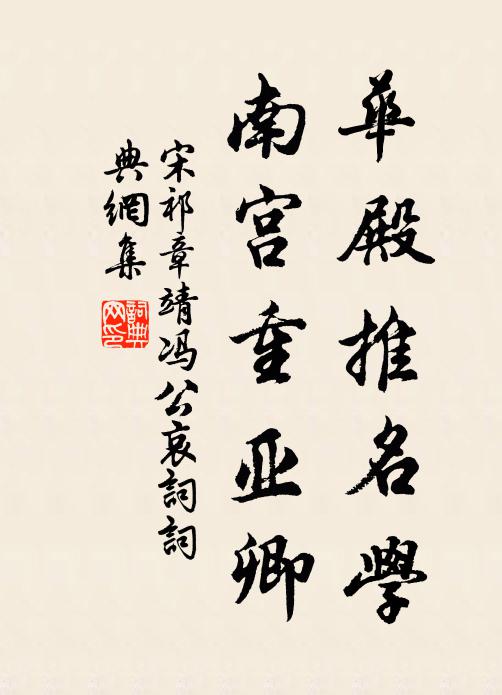 華殿推名學
南宫重亚卿
宋祁章靖冯公哀詞詞
典網集
詞典网印